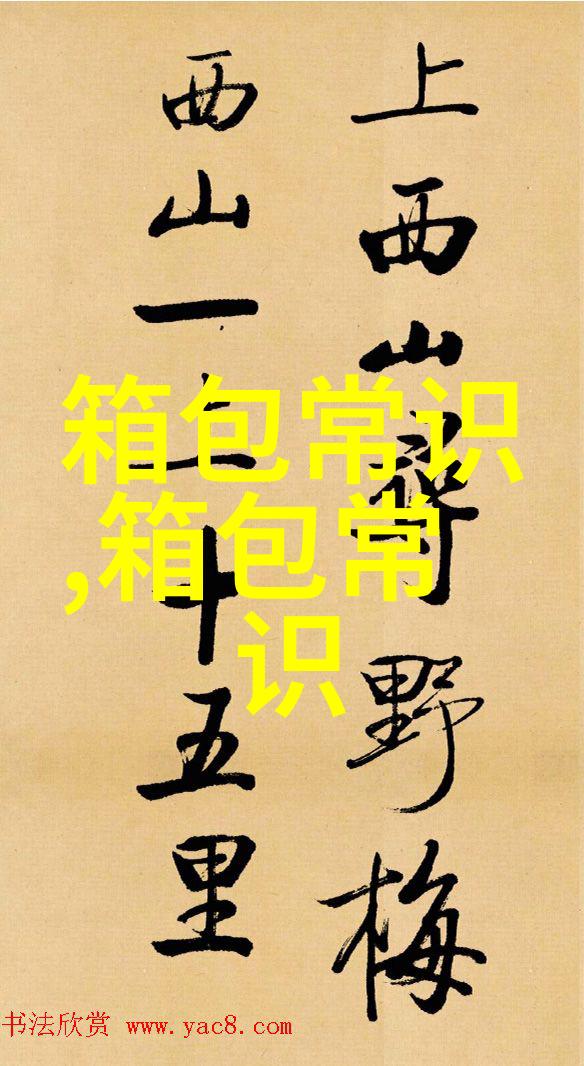 上西山尋野梅
西山一上十五里
箱包常识
,箱包常
识
书法欣赏 www.yac8.com